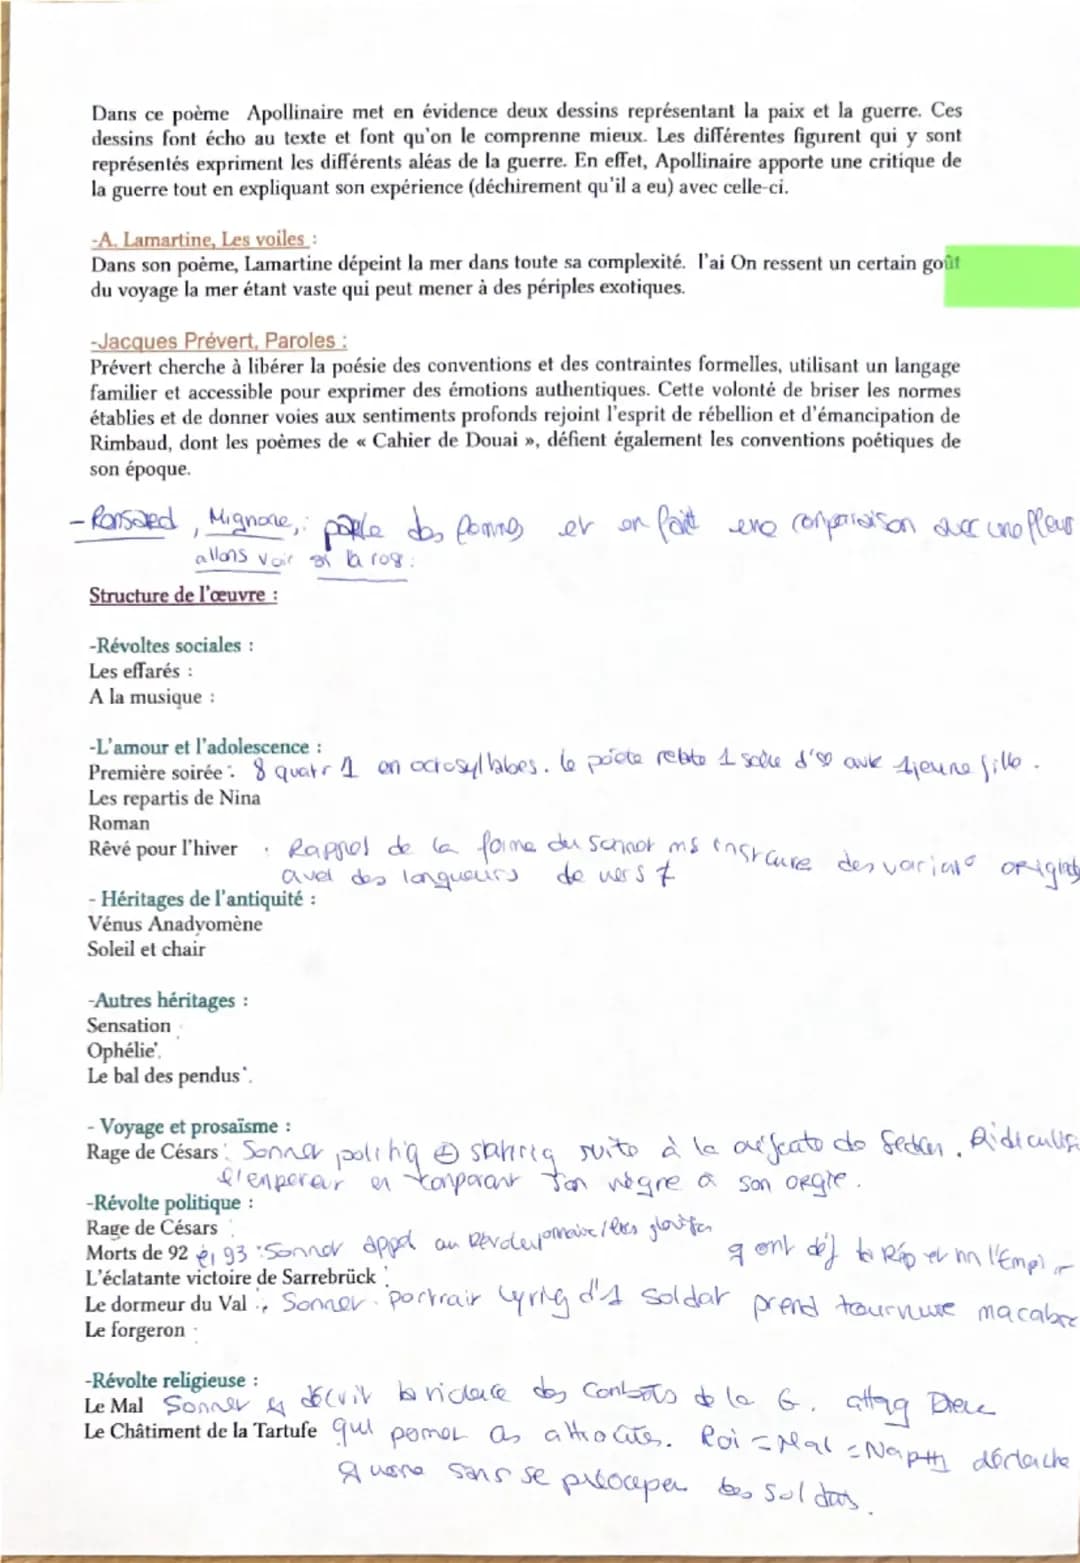 Dans ce poème Apollinaire met en évidence deux dessins représentant la paix et la guerre. Ces
dessins font écho au texte et font qu'on le comprenne mieux. Les différentes figurent qui y sont
représentés expriment les différents aléas de la guerre. En effet, Apollinaire apporte une critique de
la guerre tout en expliquant son expérience (déchirement qu'il a eu) avec celle-ci.
-A. Lamartine, Les voiles :
Dans son poème, Lamartine dépeint la mer dans toute sa complexité. l'ai On ressent un certain goût
du voyage la mer étant vaste qui peut mener à des périples exotiques.
-Jacques Prévert, Paroles :
Prévert cherche à libérer la poésie des conventions et des contraintes formelles, utilisant un langage
familier et accessible pour exprimer des émotions authentiques. Cette volonté de briser les normes
établies et de donner voies aux sentiments profonds rejoint l'esprit de rébellion et d'émancipation de
Rimbaud, dont les poèmes de « Cahier de Douai », défient également les conventions poétiques de
son époque.
- Ronsard, Mignone, : parle des femmes et en fait une comparaison avec une fleur
allons voir si la rose.
Structure de l'œuvre :
-Révoltes sociales :
Les effarés :
A la musique :
-L'amour et l'adolescence :
Première soirée : 8 quatr 1 en octosyllabes. le poète relate 1 scène d' avk 1 jeune fille.
Les repartis de Nina
Roman
Rêvé pour l'hiver : Rappel de la forme du sonnet ms instaure des variat° originales
avec des longueurs de vers ≠
- Héritages de l'antiquité :
Vénus Anadyomène
Soleil et chair
-Autres héritages :
Sensation
Ophélie
Le bal des pendus
- Voyage et prosaïsme :
Rage de Césars : Sonnet politiq ⊕ satiriq suite à la de Sedan. Ridiculise
l'empereur en comparant son règne à son orgie.
-Révolte politique :
Rage de Césars
Morts de 92 et 93 : Sonnet appel au
q ont déf la Rép et nn l'Empir
L'éclatante victoire de Sarrebrück :
Le dormeur du Val : Sonnet. portrait lyriq d'1 soldat prend tournure macabre
Le forgeron :
-Révolte religieuse :
Le Mal Sonnet décrit la violence des combats de la G. attaq Dieu
Le Châtiment de la Tartufe qui permet as atrocités. Roi = Mal = déclenche
guerre sans se préocuper des soldats.